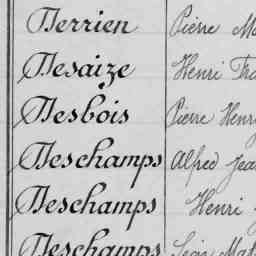 Derrien Pierre Ma
Desaize Henri Fra
Desbois Pierre Henry
Deschamps Alfred Jea
Deschamps Henri
Deschamps Léon Mat